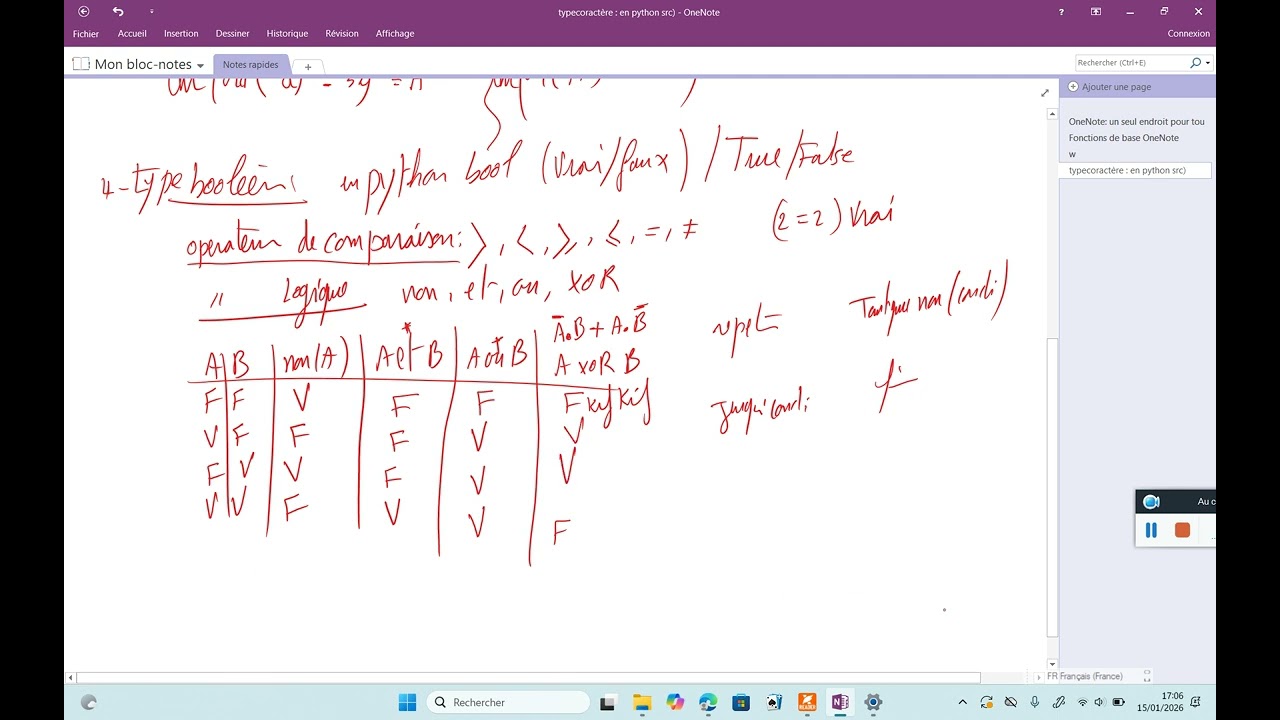 typecoractère : en python src) - OneNote
?
Fichier Accueil Insertion Dessiner Historique Révision Affichage Connexion
Mon bloc-notes Notes rapides + Rechercher (Ctrl+E)
Ajouter une page
OneNote: un seul endroit pour tou
Fonctions de base OneNote
w
typecoractère : en python src)
4- type booléen: en python bool (Vrai/faux) / True/False
operateur de comparaison: >, <, ⩾, ⩽, =, ≠ (2=2) Vrai
" Logique non, et, ou, XOR
A̅.B + A.B̅ repet Tantque non (condi)
A B non(A) A et B A ou B A XOR B
F F V F F F kif kif jusqu'à condi
V F F F V V
F V V F V V
V V F V V F
Au c
FR Français (France)
Rechercher
17:06
15/01/2026